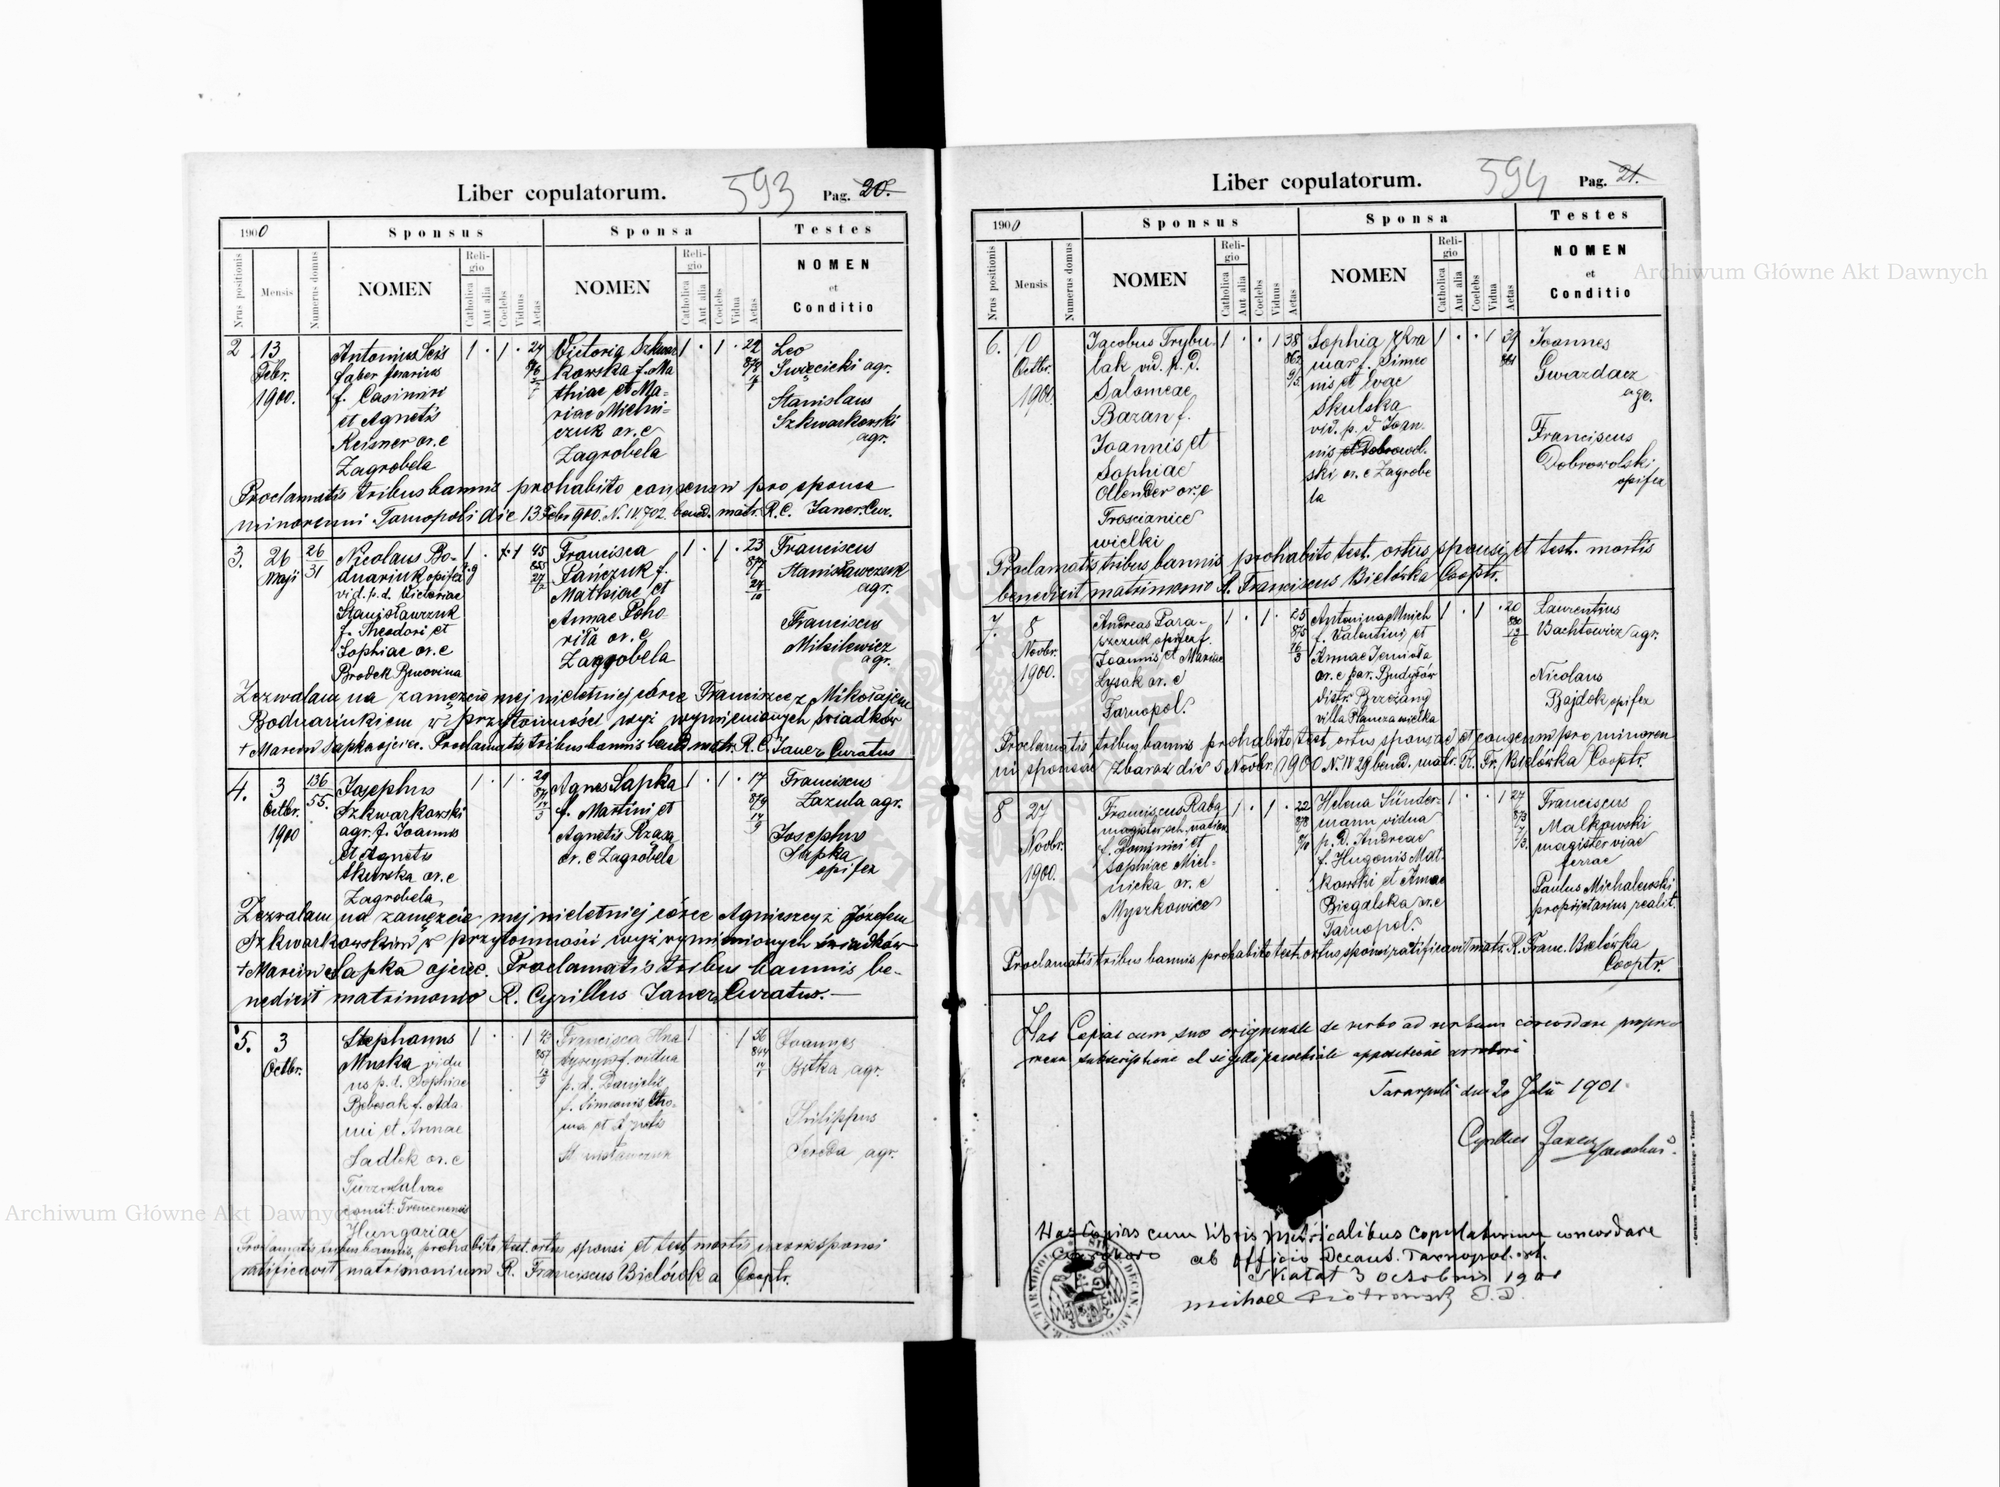 Liber copulatorum.
593
Pag. 20.
1900
Sponsus
Sponsa
Testes
Nrus positionis
Mensis
Numerus domus
NOMEN
Religio
Catholica
Aut alia
Coelebs
Viduus
Aetas
NOMEN
Religio
Catholica
Aut alia
Coelebs
Vidua
Aetas
NOMEN
et
Conditio
2
13
Febr.
1900.
Antonius
faber
f. Casimiri
et Agnetis
Reisner or. e
Zagrobela
1 . 1 . 24
Victoria Szkwar
kowska f. Ma
thiae et Ma-
riae Mielni-
czuk or. e
Zagrobela
1 . 1 . 22
Leo
Swięcicki agr.
Stanislaus
Szkwarkowski
agr.
Proclamatis tribus bannis prohabito consensu pro sponsa
minorenni Tarnopoli die 13 Febr 900. N. IV. 702. bened. matr. R. C. Janer Cur.
3.
26
Maji
26
31
Nicolaus Bo-
dnariuk opifex
vid. p. d. Victoriae
Stanisławczuk
f. Theodori et
Sophiae or. e
Brodek
45
855
Francisca
Pańczuk f.
Mathiae et
Annae Poho-
riła or. e
Zagrobela
1 . 1 . 23
877
24
10
Franciscus
Stanisławczuk
agr.
Franciscus
agr.
Zezwalam na zamęzcie mej nieletniej córce Franciszce z Mikołajem
Bodnariukiem w przytomności wyż wymienionych świadków
+ Marcin Sapka ojciec. Proclamatis tribus bannis bened. matr. R. C. Janer Curatus
4.
3
Octbr.
1900
136
55.
Josephus
Szkwarkowski
agr. f. Joannis
et Agnetis
or. e
Zagrobela
1 . 1 . 29
Agnes Sapka
f. Martini et
Agnetis
or. e Zagrobela
1 . 1 . 17
879
17
9
Franciscus
Zazula agr.
Josephus
Sapka
opifex
Zezwalam na zamęzcie mej nieletniej córce Agnieszcy z Józefem
Szkwarkowskim w przytomności wyż wymienionych świadków
+ Marcin Sapka ojciec. Proclamatis tribus bannis be-
nedixit matrimonio R. Cyrillus Janer Curatus.
5.
3
Octbr.
Stephanus
Muska vidu
us p. d. Sophiae
Bebesak f. Ada
mi et Annae
Sadlek or. e
comit. Trencenensis
Hungariae
1 . . 1 43
857
Francisca Hna
f. vidua
p. d. Danielis
f. Simeonis
et Agnetis
1 . 1 56
844
Joannes
Bitka agr.
Philippus
Sereda agr.
Proclamatis tribus bannis, prohabito test. ortus sponsi et test. mortis uxoris sponsi
ratificavit matrimonium R. Franciscus Bielówka Cooptr.
Liber copulatorum.
594
Pag. 21.
1900
Sponsus
Sponsa
Testes
Nrus positionis
Mensis
Numerus domus
NOMEN
Religio
Catholica
Aut alia
Coelebs
Viduus
Aetas
NOMEN
Religio
Catholica
Aut alia
Coelebs
Vidua
Aetas
NOMEN
et
Conditio
6.
10
Octbr.
1900
Jacobus Trybu-
lak vid. p. d.
Salomeae
Baran f.
Joannis et
Sophiae
Ollender or. e
Troscianiec
wielki
1 . . 1 38
862
Sophia
f. Simeo
nis et Evae
Skulska
vid. p. d. Joan-
nis et Dobrowol-
ski or. e Zagrobe
la
1 . . 1 39
861
Joannes
Gwazdacz
agr.
Franciscus
Dobrowolski
opifex
Proclamatis tribus bannis prohabito test. ortus sponsi et test. mortis
benedixit matrimonio R. Franciscus Bielówka Cooptr.
7.
8
Novbr.
1900.
Andreas Para-
szczuk opifex f.
Joannis et Mariae
Łysak or. e
Tarnopol.
1 . 1 . 25
875
16
3
Antonina Mnich
f. Valentini et
Annae
or. e par.
distr. Brzeżany
villa Płaucza wielka
1 . 1 . 20
880
13
6
Laurentius
Bachtowicz agr.
Nicolaus
Bajdok opifex
Proclamatis tribus bannis prohabito test. ortus sponsae et consensu pro minoren
ni sponsae Zbaraz die 5 Novbr. 1900 N. IV 29 bened. matr. R. Fr. Bielówka Cooptr.
8
27
Novbr.
1900.
Franciscus Raba
magister sch.
f. Dominici et
Sophiae Miel-
nicka or. e
Myszkowice
1 . 1 . 22
878
Helena Sünder-
mann vidua
p. d. Andreae
f. Hugonis Mał-
kowski et Annae
Biegalska or. e
Tarnopol.
1 . . 1 27
873
Franciscus
Małkowski
magister viae
ferrae
Paulus Michalewski
proprietarius realit.
Proclamatis tribus bannis prohabito test. ortus sponsi ratificavit matr. R. Franc. Bielówka
Cooptr.
Has Copias cum suo originale de verbo ad verbum concordare propria
mea subscriptione et sigilli parochialis appositione
Tarnopoli die 20 Julii 1901
Cyrillus Janer
Has Copias cum libris metricalibus copulatorum concordare
ab Officio Decan. Tarnopol.
Skałat 3 Octobris 1901
Michael Piotrowski
Archiwum Główne Akt Dawnych
Archiwum Główne Akt Dawnych